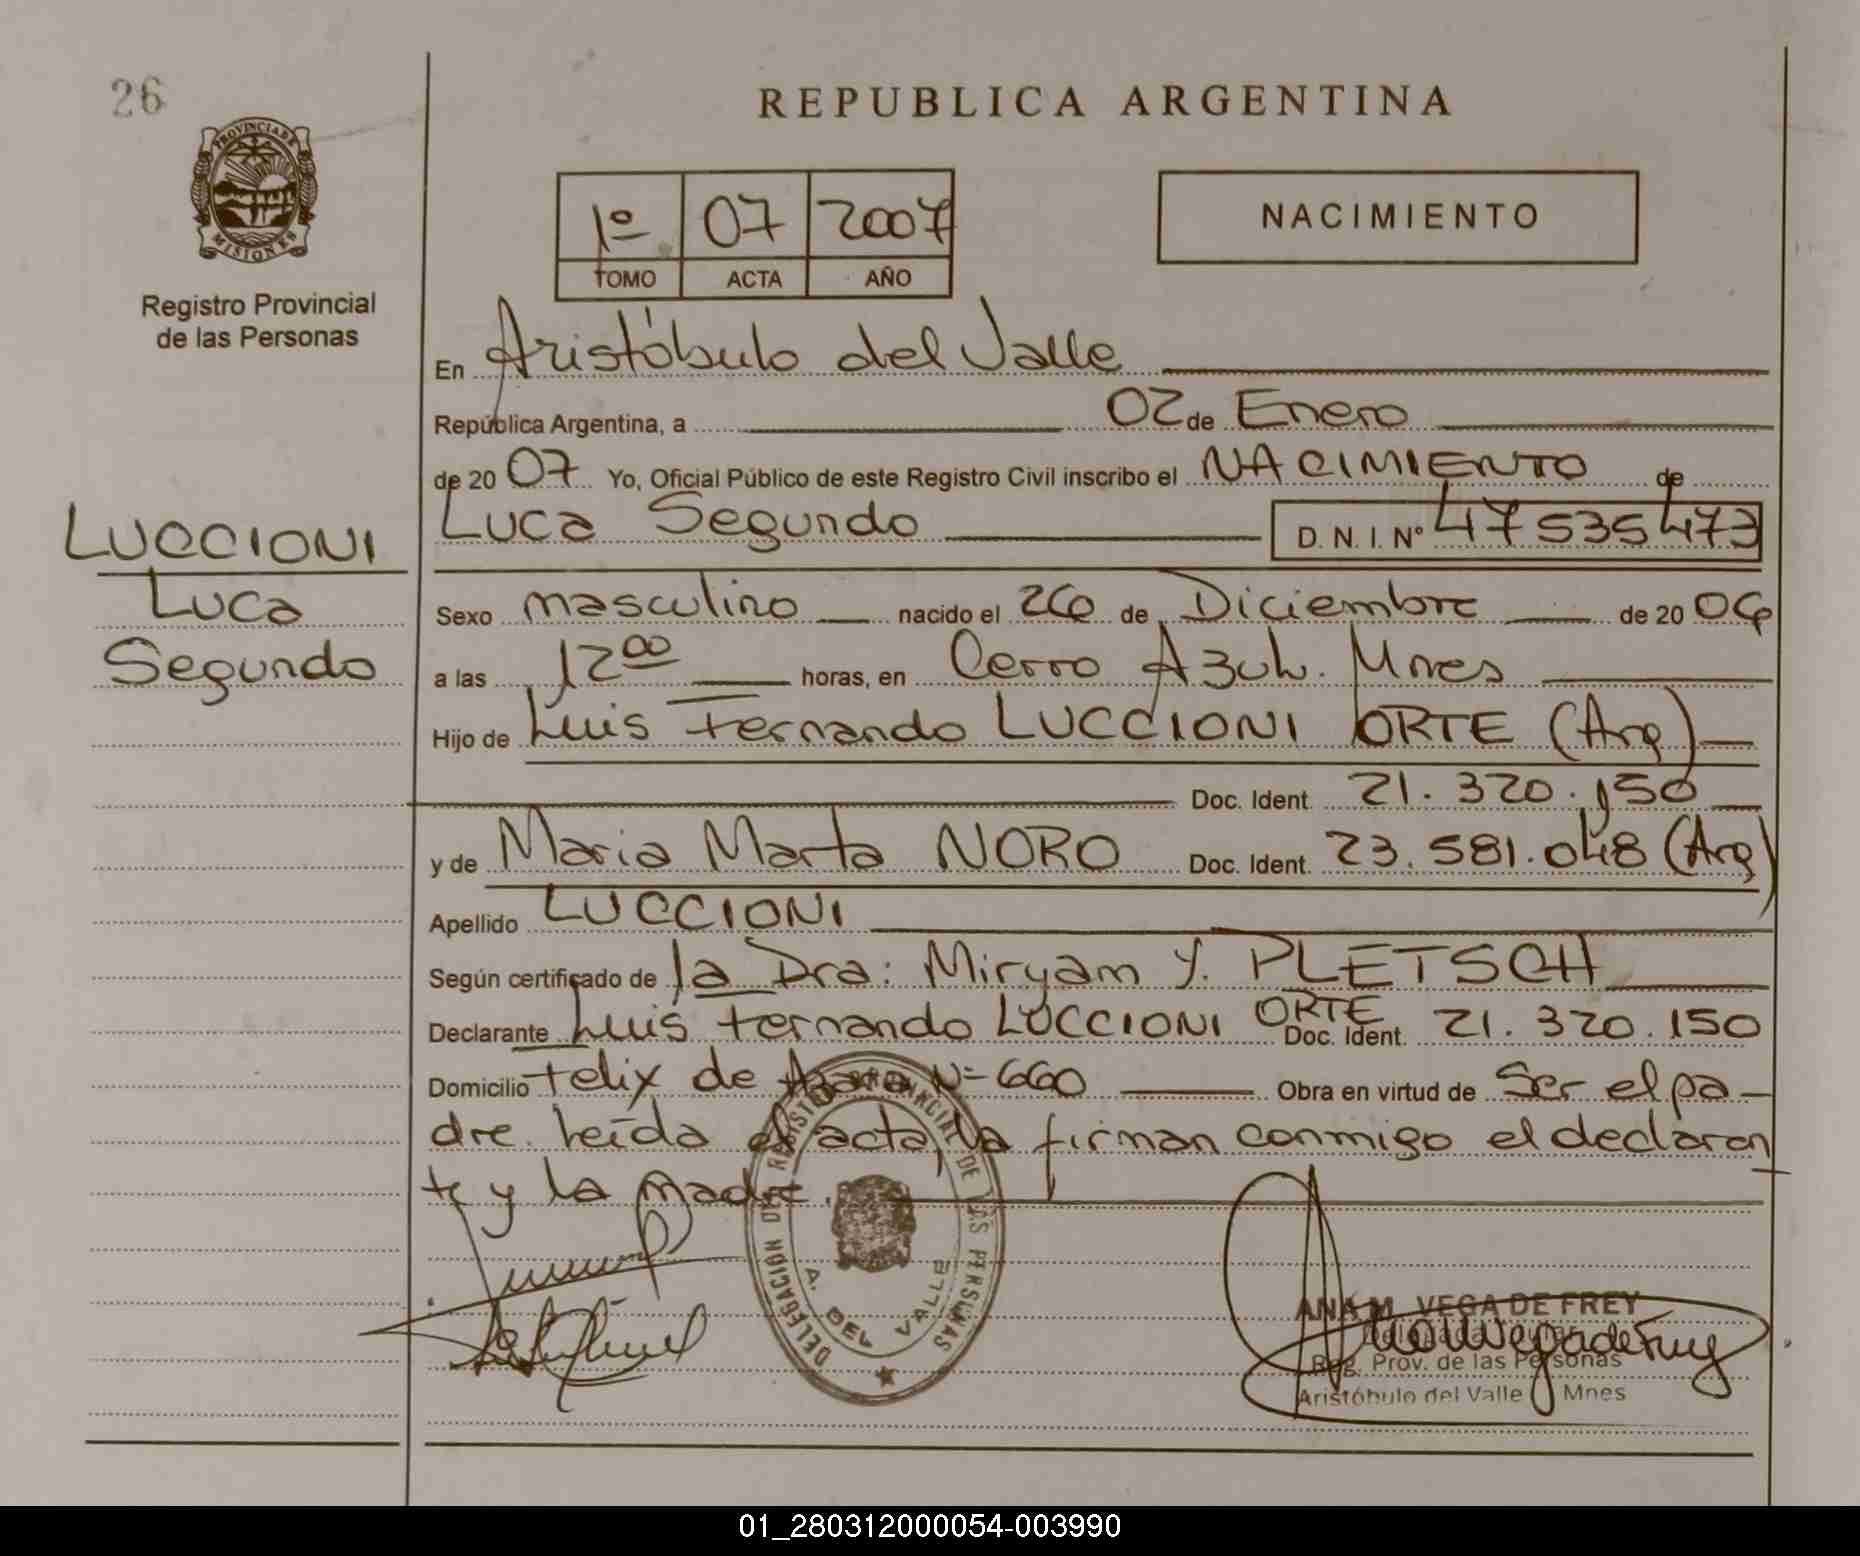 26
PROVINCIA DE
MISIONES
Registro Provincial
de las Personas
LUCCIONI
Luca
Segundo
REPUBLICA ARGENTINA
1º 07 2007
TOMO ACTA AÑO
NACIMIENTO
En Aristóbulo del Valle
República Argentina, a 02 de Enero
de 20 07 Yo, Oficial Público de este Registro Civil inscribo el NACIMIENTO de
Luca Segundo D. N. I. Nº 47535473
Sexo masculino nacido el 26 de Diciembre de 20 06
a las 12 00 horas, en Cerro Azul. Mnes
Hijo de Luis Fernando LUCCIONI ORTE (Arg)
Doc. Ident. 21.320.150
y de Maria Marta NORO Doc. Ident. 23.581.048 (Arg)
Apellido LUCCIONI
Según certificado de la Dra: Miryam Y. PLETSCH
Declarante Luis Fernando LUCCIONI ORTE Doc. Ident. 21.320.150
Domicilio Felix de Azara Nº 660 Obra en virtud de Ser el pa-
dre. Leída el acta, la firman conmigo el declaran
te y la madre.
DELEGACION DEL REGISTRO PROVINCIAL DE LAS PERSONAS
A. DEL VALLE
ANA M. VEGA DE FREY
Delegada Titular
Reg. Prov. de las Personas
Aristóbulo del Valle Mnes
01_280312000054-003990